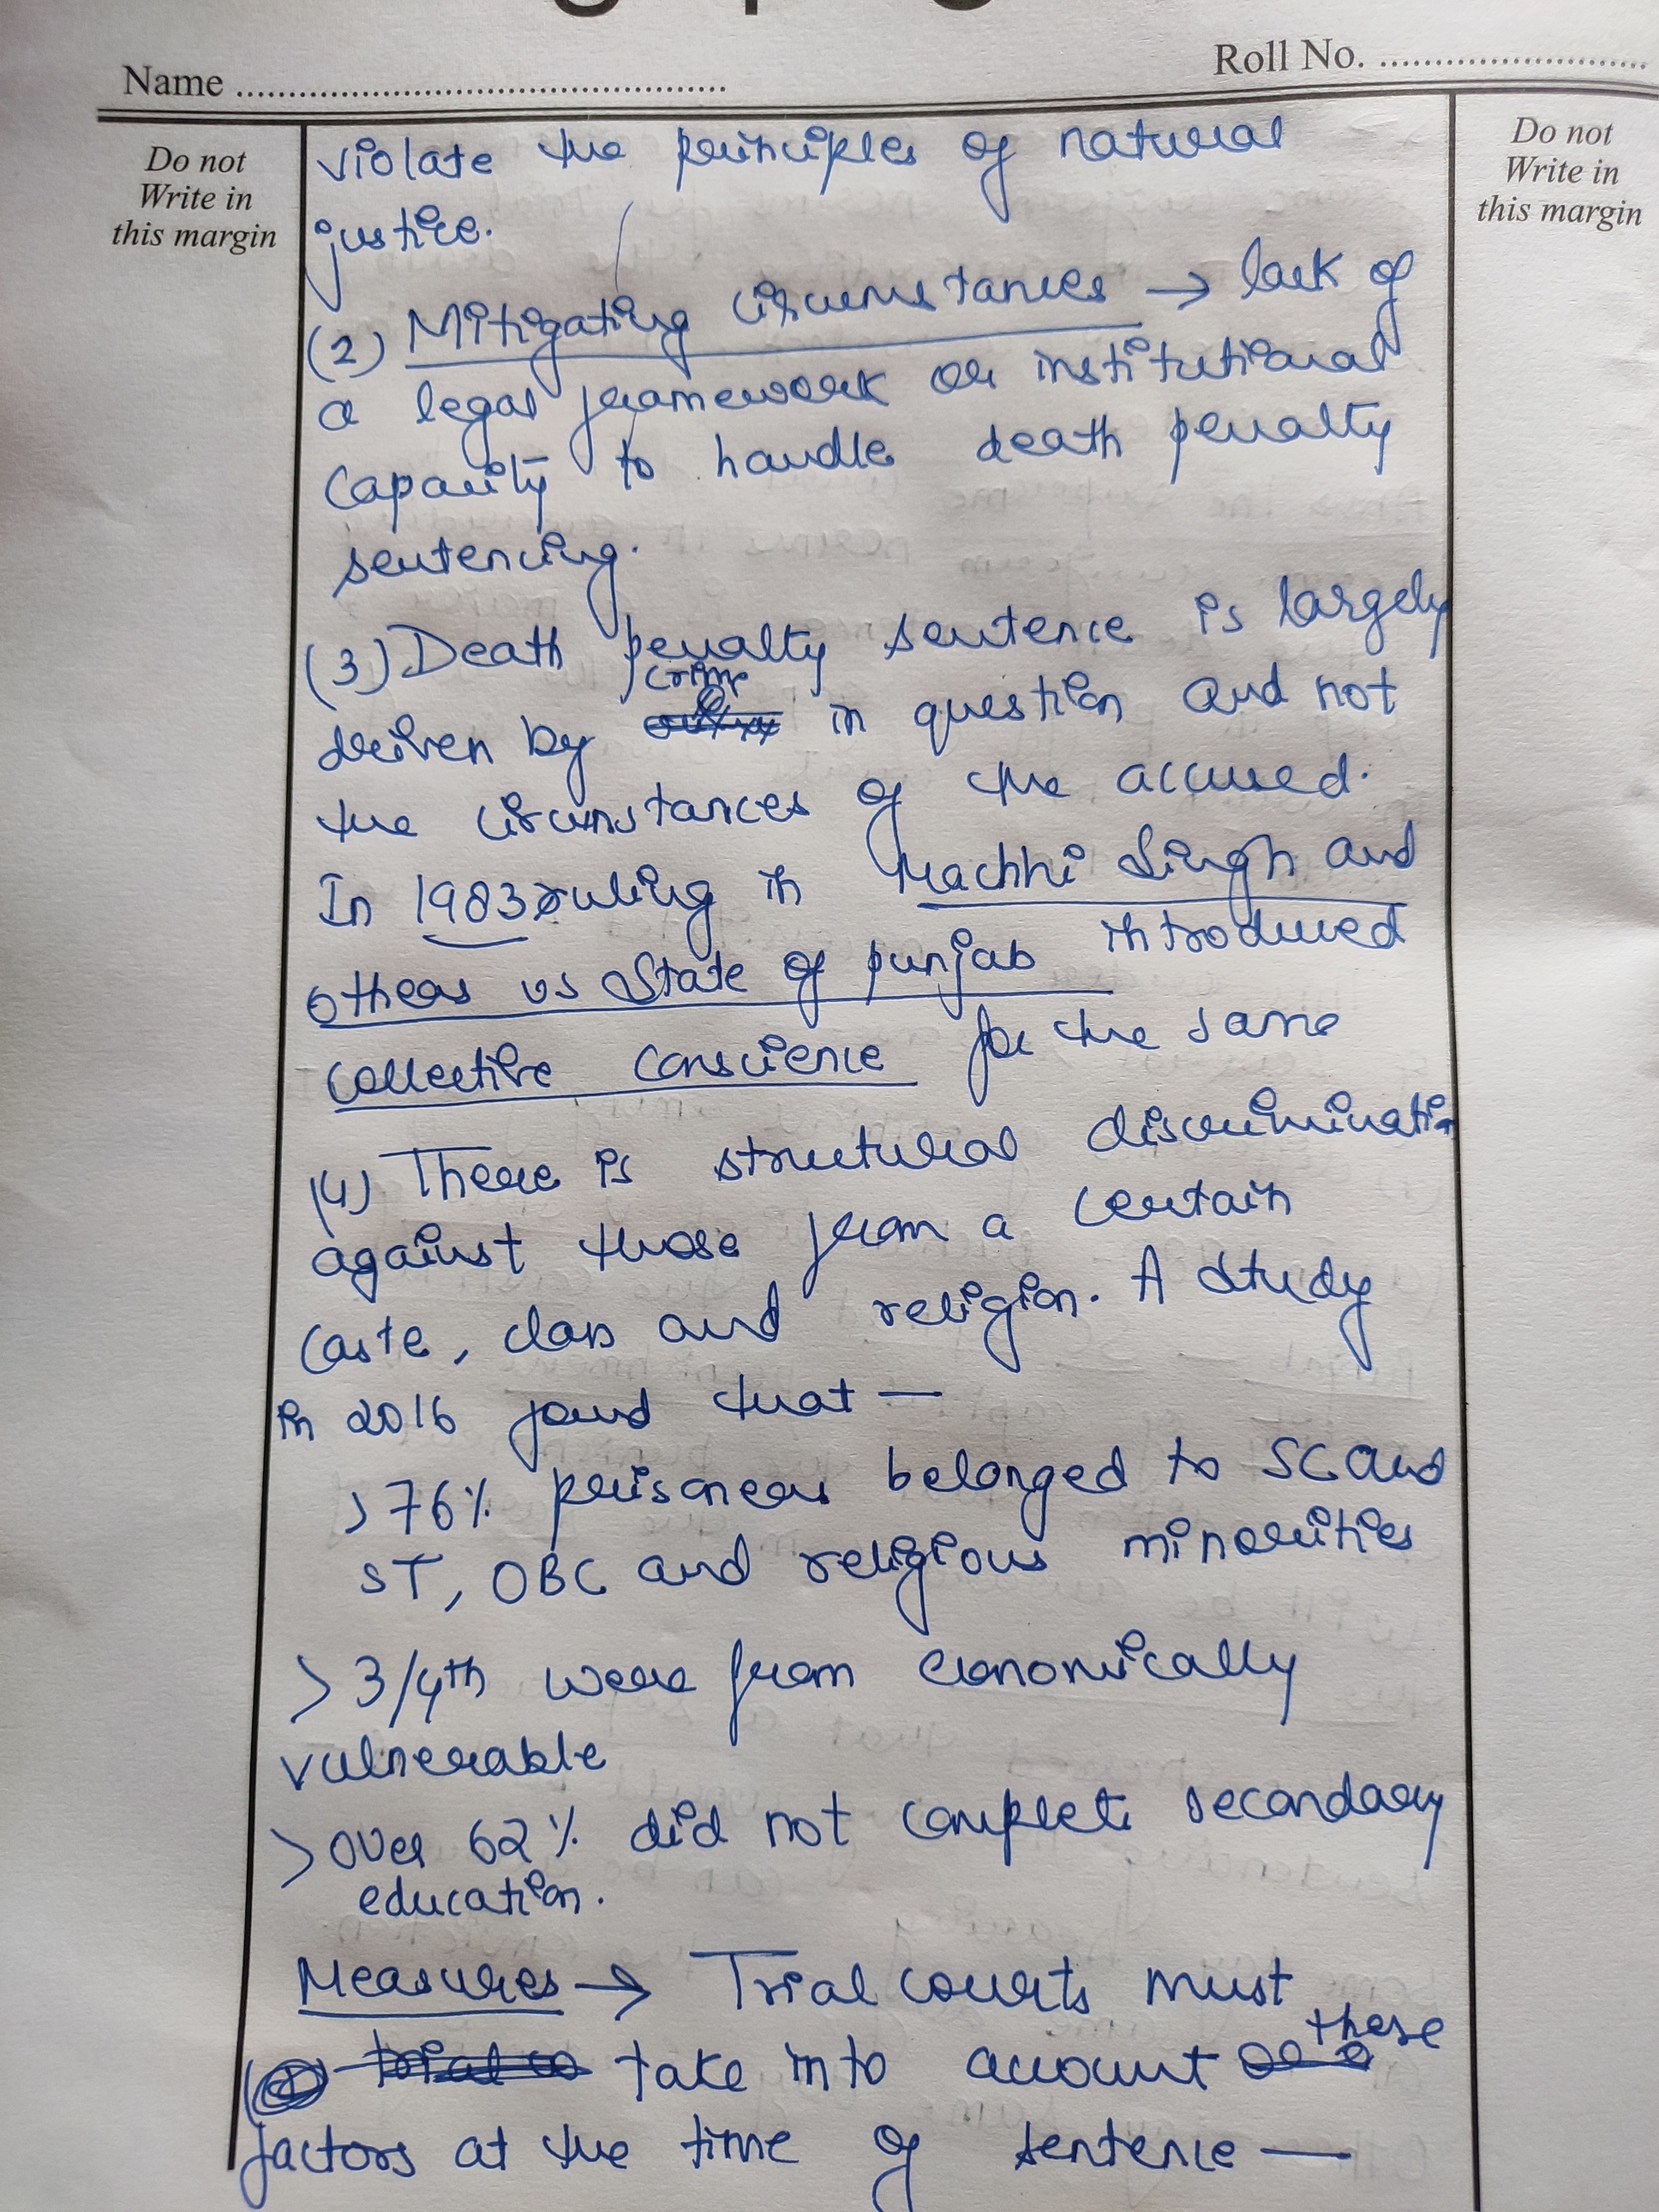 Name
Roll No.
Do not
Write in
this margin
Do not
Write in
this margin
violate the principles of natural
justice.
(2) Mitigating circumstances → lack of
a legal framework or institutional
capacity to handle death penalty
sentencing.
(3) Death penalty sentence is largely
driven by crime in question and not
the circumstances of the accused.
In 1983 ruling in Machhi Singh and
others vs State of punjab introduced
collective conscience for the same
(4) There is structural discrimination
against those from a certain
caste, class and religion. A study
in 2016 found that —
> 76% prisoners belonged to SC and
ST, OBC and religious minorities
> 3/4th were from economically
vulnerable
> over 62% did not complete secondary
education.
Measures → Trial courts must
take into account these
factors at the time of sentence —